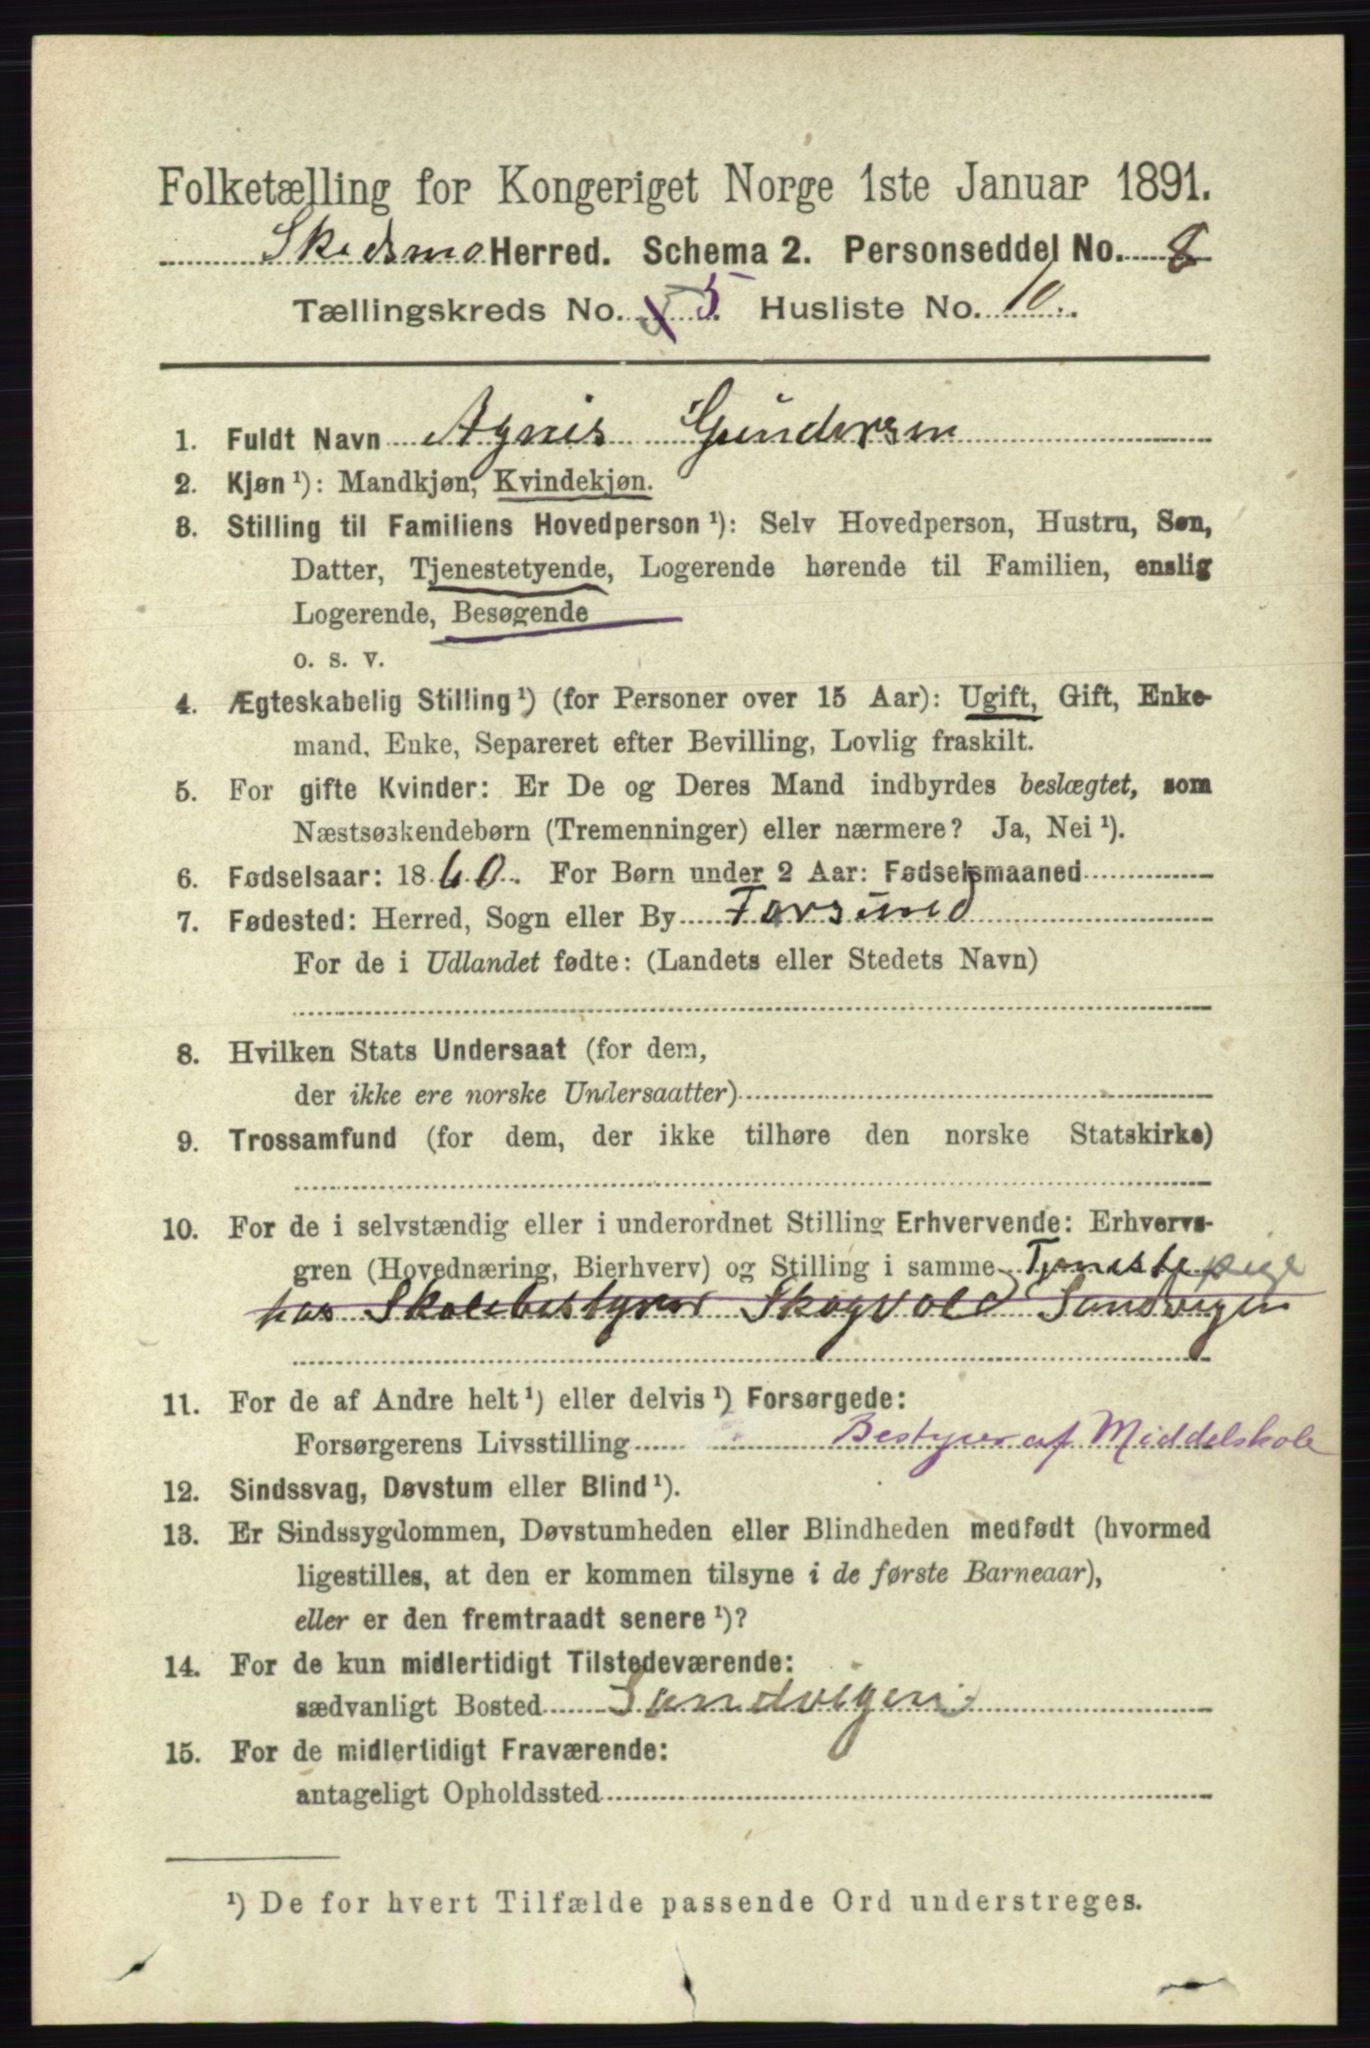 Folketælling for Kongeriget Norge 1ste Januar 1891.
Skedsmo Herred. Schema 2. Personseddel No. 8
Tællingskreds No. 5. Husliste No. 10.
1. Fuldt Navn Agnis Gundersen
2. Kjøn ¹): Mandkjøn, Kvindekjøn.
3. Stilling til Familiens Hovedperson ¹): Selv Hovedperson, Hustru, Søn,
Datter, Tjenestetyende, Logerende hørende til Familien, enslig
Logerende, Besøgende
o. s. v.
4. Ægteskabelig Stilling ¹) (for Personer over 15 Aar): Ugift, Gift, Enke-
mand, Enke, Separeret efter Bevilling, Lovlig fraskilt.
5. For gifte Kvinder: Er De og Deres Mand indbyrdes beslægtet, som
Næstsøskendebørn (Tremenninger) eller nærmere? Ja, Nei ¹).
6. Fødselsaar: 1860. For Børn under 2 Aar: Fødselsmaaned
7. Fødested: Herred, Sogn eller By Farsund
For de i Udlandet fødte: (Landets eller Stedets Navn)
8. Hvilken Stats Undersaat (for dem,
der ikke ere norske Undersaatter)
9. Trossamfund (for dem, der ikke tilhøre den norske Statskirke)
10. For de i selvstændig eller i underordnet Stilling Erhvervende: Erhvervs-
gren (Hovednæring, Bierhverv) og Stilling i samme Tjenestepige
hos Skolebestyrer Skogvold Sandvigen
11. For de af Andre helt ¹) eller delvis ¹) Forsørgede:
Forsørgerens Livsstilling Bestyrer af Middelskole
12. Sindssvag, Døvstum eller Blind ¹).
13. Er Sindssygdommen, Døvstumheden eller Blindheden medfødt (hvormed
ligestilles, at den er kommen tilsyne i de første Barneaar),
eller er den fremtraadt senere ¹)?
14. For de kun midlertidigt Tilstedeværende:
sædvanligt Bosted Sandvigen
15. For de midlertidigt Fraværende:
antageligt Opholdssted
¹) De for hvert Tilfælde passende Ord understreges.